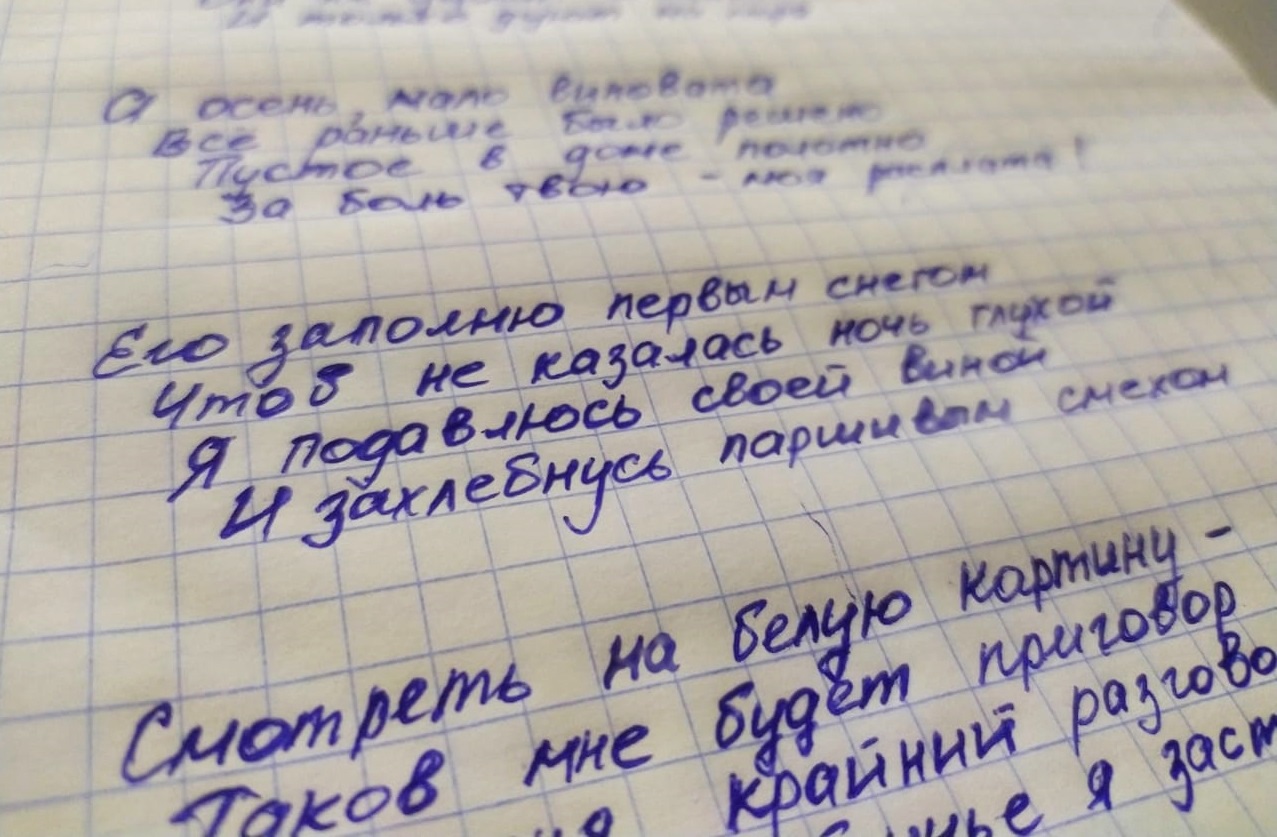 А осень, мало виновата
Всё раньше было решено
Пустое в доме полотно
За боль твою - моя расплата!
Его заполню первым снегом
Чтоб не казалась ночь глухой
Я подавлюсь своей виной
И захлебнусь паршивым смехом
Смотреть на белую картину -
Таков мне будет приговор
крайний разгово
я заст